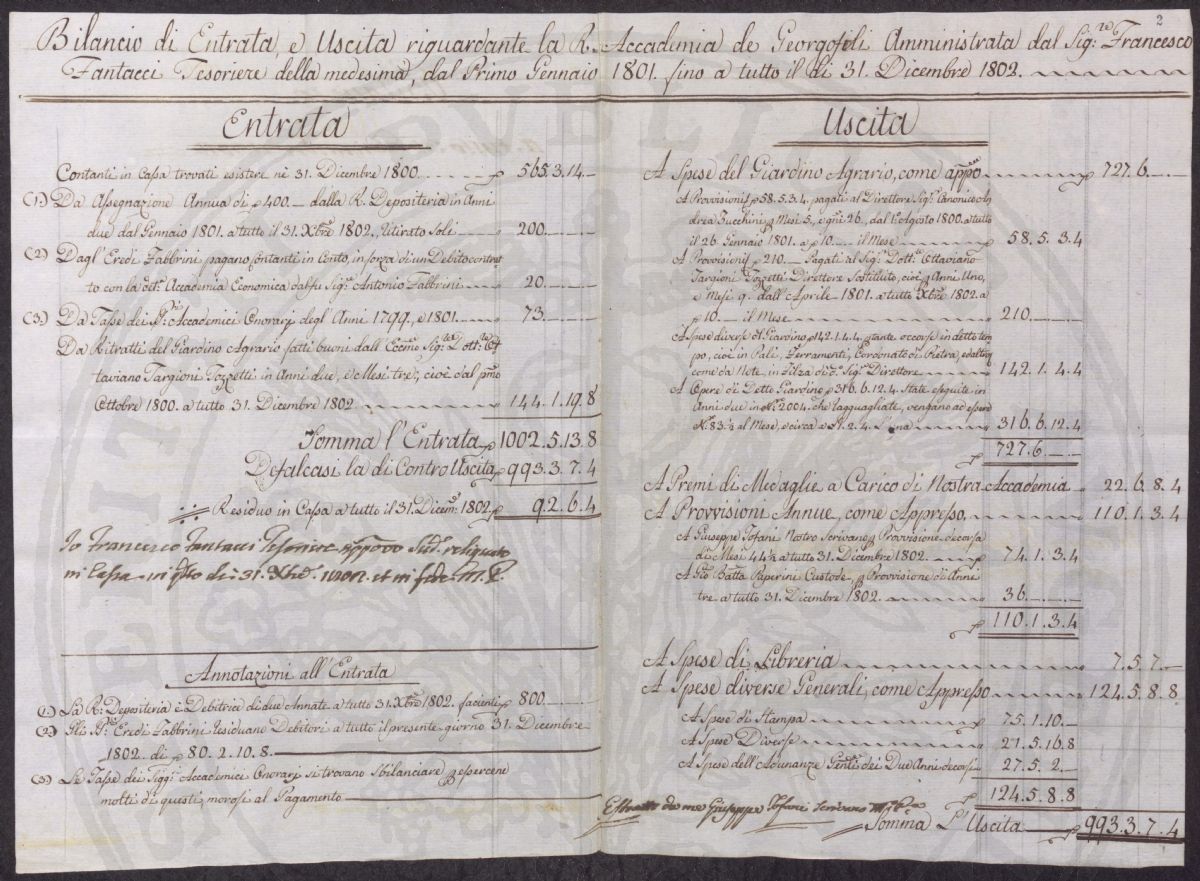 2
Bilancio di Entrata, e Uscita riguardante la R. Accademia de Georgofoli Amministrata dal Sig.re Francesco
Fantacci Tesoriere della medesima, dal Primo Gennaio 1801. fino a tutto il di 31. Dicembre 1802.
Entrata
Contanti in Cassa trovati esistere ne 31. Dicembre 1800. 565.3.14.—
(1.) Da Assegnazione Annua di p 400.— dalla R. Depositeria in Anni
due dal Gennaio 1801. a tutto il 31. Xbre 1802., Ritirato Soli 200.
(2.) Dagl'Eredi Fabbrini pagano contante in Conto, in forza di un Debito contrat-
to con la Accademia Economica dal fu Sig.r Antonio Fabbrini 20.
(3.) Da Tasse dei Accademici Onorarj degl'Anni 1799. e 1801. 73.
Da Ritratti del Giardino Agrario fatti buoni dall'Eccmo Sig.re Dott.re Ot-
taviano Targioni Tozzetti in Anni due, e Mesi tre, cioè dal pmo
Ottobre 1800. a tutto 31. Dicembre 1802 144.1.19.8
Somma l'Entrata p 1002.5.13.8
Defalcasi la di Contro Uscita p 993.3.7.4
Residuo in Cassa a tutto il 31. Dicem. 1802. p 9.2.6.4
Io Francesco Fantacci Tesoriere approvo
in Cassa in di 31. Xbre 1802. M. P.
Annotazioni all'Entrata
(1.) La R. Depositeria è Debitrice di due Annate a tutto 31. Xbre 1802. facienti p 800.
(2.) Gli Eredi Fabbrini Residuano Debitori a tutto il presente giorno 31. Dicembre
1802. di p 80.2.10.8.
(3.) Le Tasse dei Sigg.i Accademici Onorarj si trovano sbilanciare p essercene
molti di questi, morosi al Pagamento
Uscita
A Spese del Giardino Agrario, come appo p 727.6.—
A Provvisioni p 58.5.3.4. pagati al Direttore Sig.r Canonico An-
drea Zucchini p Mesi 5, e gni 26, dal 1. Agosto 1800. a tutto
il 26. Gennaio 1801. a p 10.— il Mese 58.5.3.4
A Provvisioni p 210.— Pagati al Sig. Dott.e Ottaviano
Targioni Tozzetti Direttore Sostituto, cioè p Anni Uno,
e Mesi 9. dall'Aprile 1801. a tutto Xbre 1802. a
p 10.— il Mese 210.
A Spese diverse di Giardino p 142.1.4.4. p tante occorse in detto tem-
po, cioè in Pali, Ferramenti, Cordonate di Pietra, ed altro
come da Note in Filza di Sig.r Direttore 142.1.4.4
A Opere di Detto Giardino p 316.6.12.4. State eseguite in
Anni due in N. 2004. che ragguagliate, vengano ad essere
N. 83.½ al Mese, e circa a L. 1.2.4. L'una 316.6.12.4
p 727.6.
A Premi di Medaglie a Carico di Nostra Accademia 22.6.8.4
A Provvisioni Annue, come Appresso 110.1.3.4
A Giuseppe Tofani Nostro Scrivano p Provvisione decorsa
di Mesi 44½ a tutto 31. Dicembre 1802. p 74.1.3.4
A Gio Batta Paperini Custode, p Provvisione di Anni
tre a tutto 31. Dicembre 1802. 36.
p 110.1.3.4
A Spese di Libreria 7.5.7.—
A Spese diverse Generali, come Appresso 124.5.8.8
A Spese di Stampa p 75.1.10.
A Spese Diverse 21.5.16.8
A Spese dell'Adunanze Genli dei Due Anni decorsi 27.5.2
p 124.5.8.8
Estratto da me Giuseppe Tofani Scrivano
Somma L'Uscita p 993.3.7.4